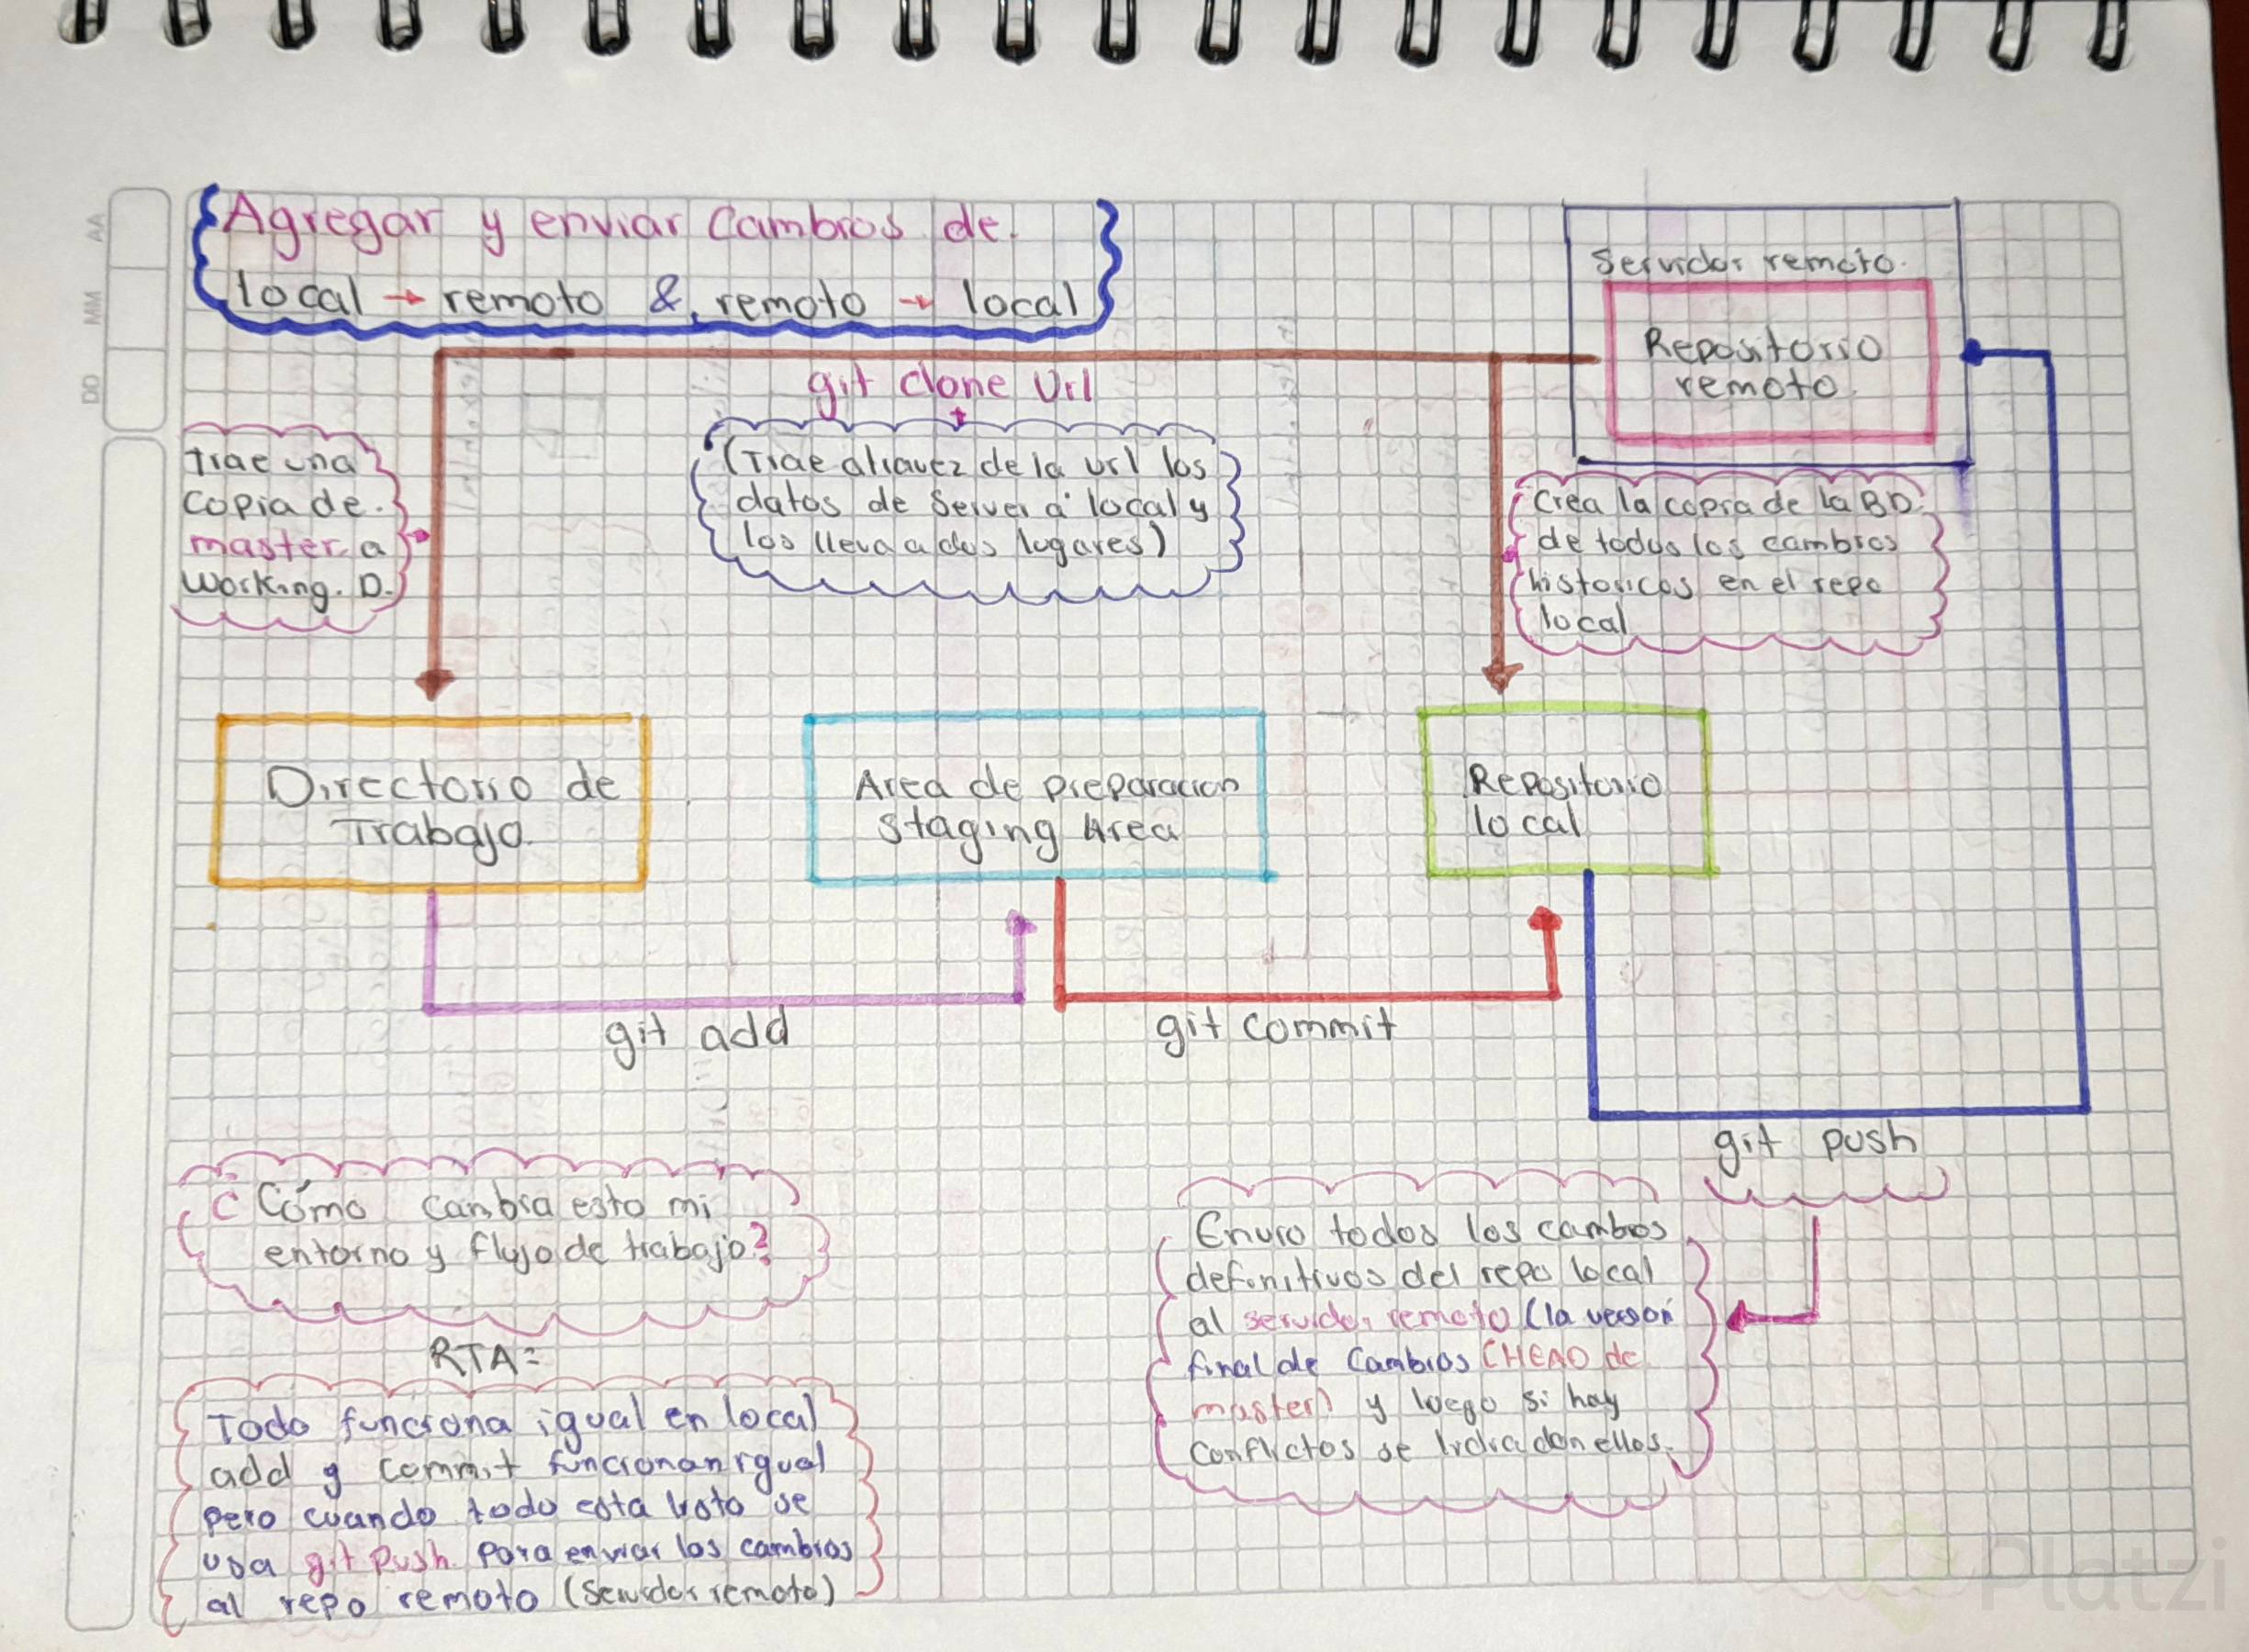 Agregar y enviar Cambios de.
local → remoto & remoto → local
Servidor remoto.
Repositorio
remoto.
git clone Url
Trae una
copia de.
master a
Working. D.
(Trae atravez de la url los
datos de Server a local y
los lleva a dos lugares)
Crea la copia de la BD
de todos los cambios
historicos en el repo
local
Directorio de
Trabajo.
Area de preparacion
Staging Area
Repositorio
local
git add
git commit
git push
¿Cómo cambia esto mi
entorno y flujo de trabajo?
RTA=
Todo funciona igual en local
add y commit funcionan igual
pero cuando todo esta listo se
usa git push para enviar los cambios
al repo remoto (Servidor remoto)
Envio todos los cambios
definitivos del repo local
al servidor remoto (la version
final de Cambios (HEAD de
master) y luego si hay
conflictos se lidia con ellos.
AA
MM
DD
Platzi